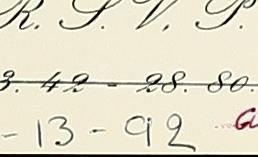 R. S. V. P.
3. 42 - 28. 80.
- 13 - 92